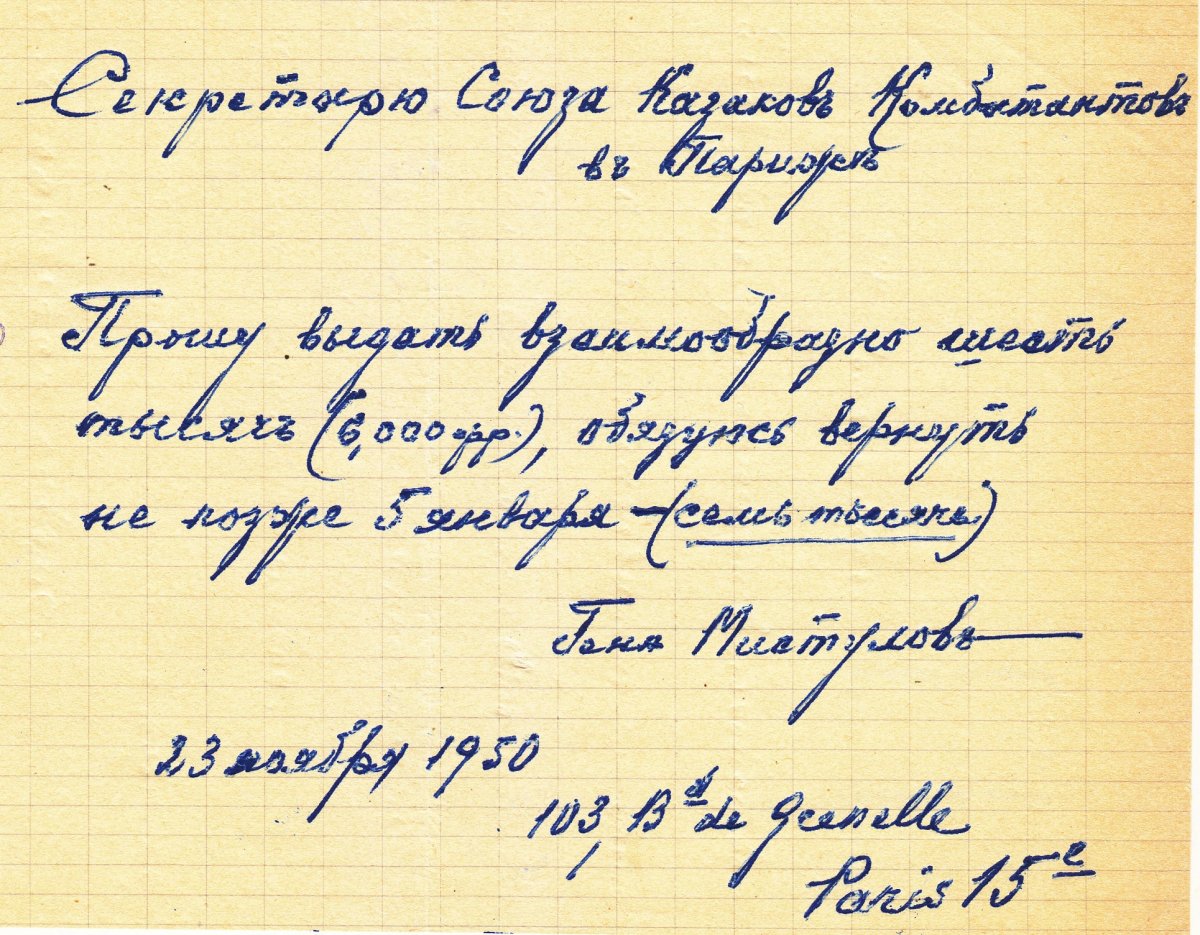 Секретарю Союза Казаковъ Комбатантовъ
въ Парижѣ
Прошу выдать взаимообразно шесть
тысячъ (6,000 фр.), обязуюсь вернуть
не позже 5 января – (семь тысячъ)
Гена Мистуловъ
23 ноября 1950
103, Bd de Grenelle
Paris 15e